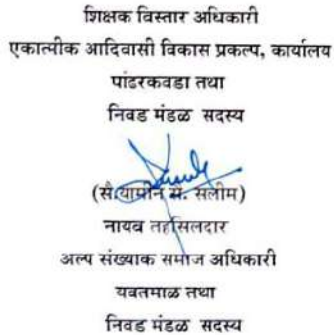 शिक्षक विस्तार अधिकारी
एकात्मीक आदिवासी विकास प्रकल्प, कार्यालय
पांढरकवडा तथा
निवड मंडळ सदस्य
(सै.यामीन सै. सलीम)
नायब तहसिलदार
अल्प संख्याक समाज अधिकारी
यवतमाळ तथा
निवड मंडळ सदस्य